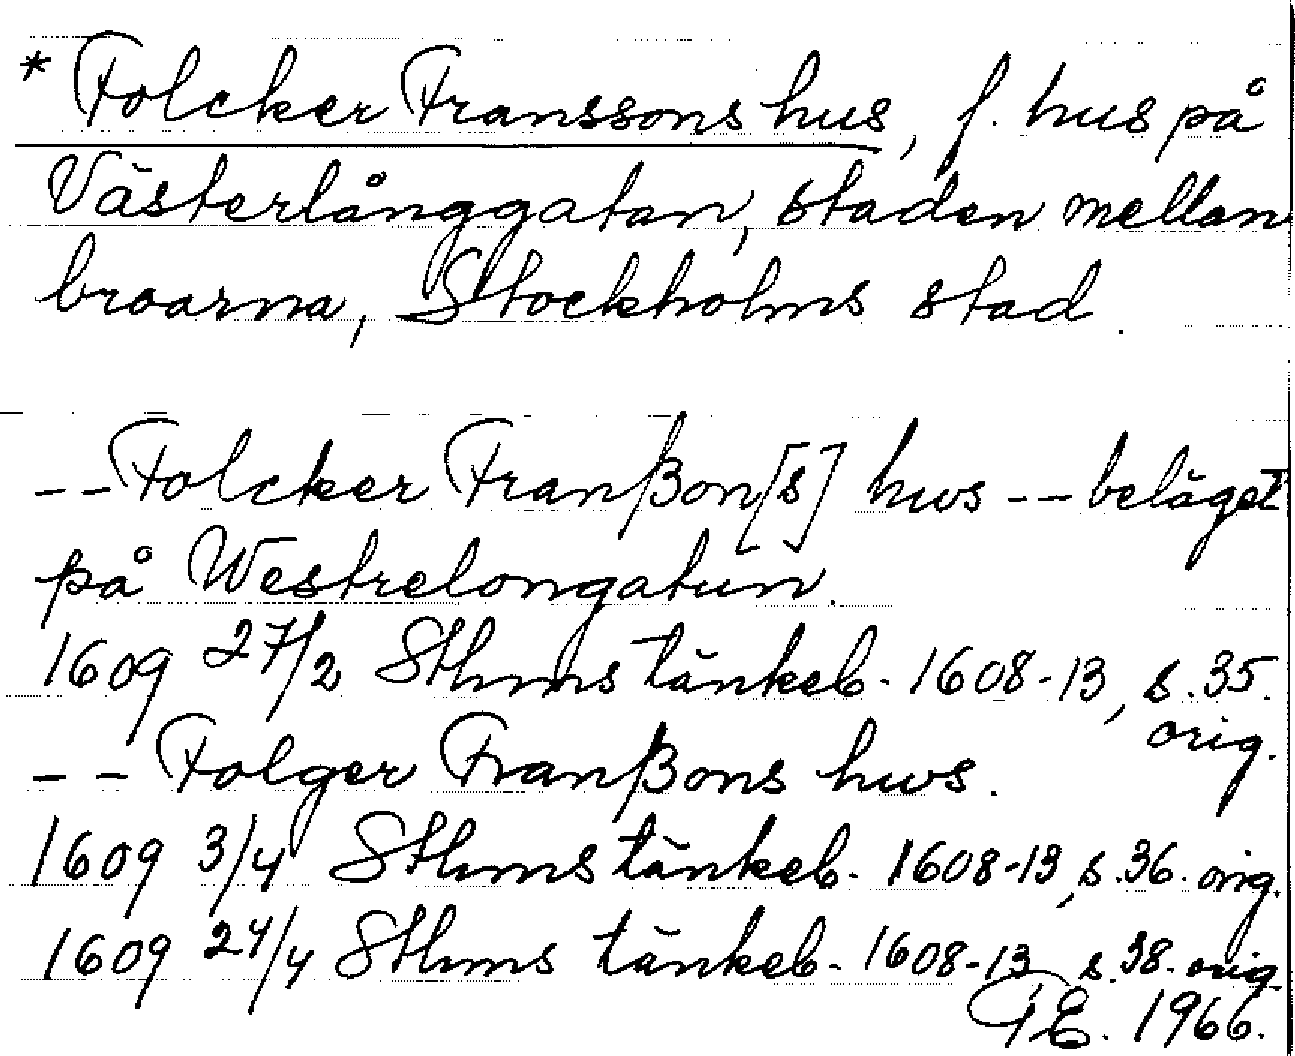 * Folcker Franssons hus, f. hus på
Västerlånggatan, staden mellan
broarna, Stockholms stad.
-- Folcker Franßon[s] hws -- beläget
på Westrelongatun.
1609 27/2 Sthms tänkeb. 1608-13, s. 35.
orig.
-- Folger Franßons hws.
1609 3/4 Sthms tänkeb. 1608-13, s. 36. orig.
1609 24/4 Sthms tänkeb. 1608-13, s. 38. orig
1966.